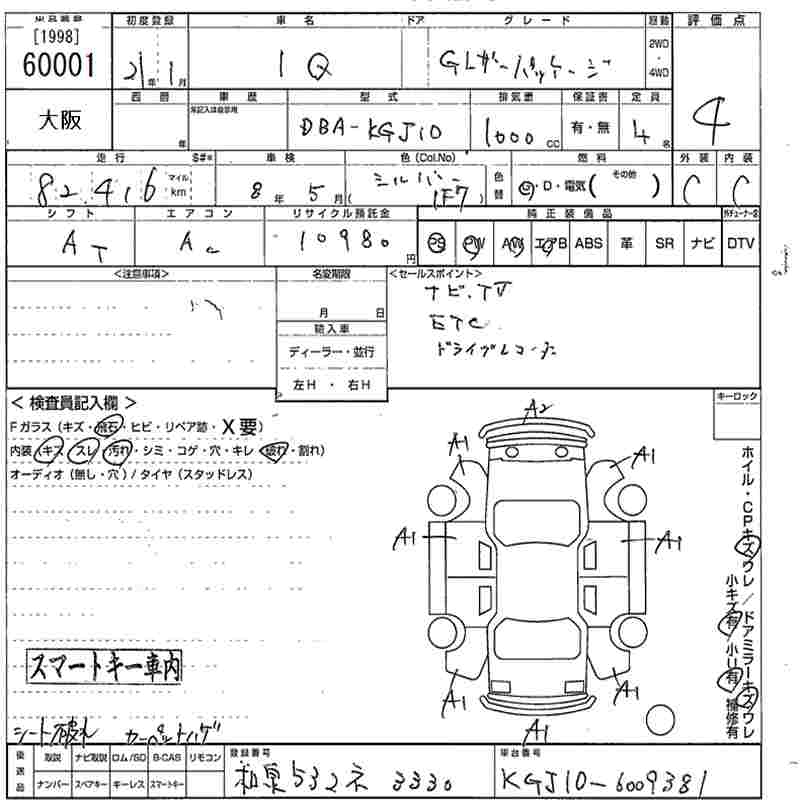 [1998]
60001
初度登録
車名
ドア
グレード
駆動
評価点
21年1月
IQ
GLガーパッケージ
2WD
・
4WD
4
大阪
西暦
年
車歴
型式
排気量
保証書
定員
DBA-KGJ10
1000cc
有・無
4名
走行
S#*
車検
色(Col.No)
色替
燃料
外装
内装
82,416
マイル
km
8年5月
シルバー
(1F7)
G・D・電気(その他)
C
C
シフト
エアコン
リサイクル預託金
純正装備品
AT
AC
10980円
PS
PW
AW
エアB
ABS
革
SR
ナビ
DTV
<注意事項>
名変期限
月日
輸入車
ディーラー・並行
左H・右H
<セールスポイント>
ナビ.TV
ETC
ドライブレコーダ
<検査員記入欄>
Fガラス(キズ・飛石・ヒビ・リペア跡・X要)
内装(キズ・スレ・汚れ・シミ・コゲ・穴・キレ・破れ・割れ)
オーディオ(無し・穴)/タイヤ(スタッドレス)
キーロック
A2
A1
A1
A1
A1
A1
A1
A1
ホイル・CPキズウレ/ドアミラーキズウレ
小キズ有/小U有/補修有
スマートキー車内
シート破れ カーペットハゲ
後送品
取説
ナビ取説
ロム/SD
B-CAS
リモコン
ナンバー
スペアキー
キーレス
スマートキー
登録番号
和泉532ネ3330
車台番号
KGJ10-6009381